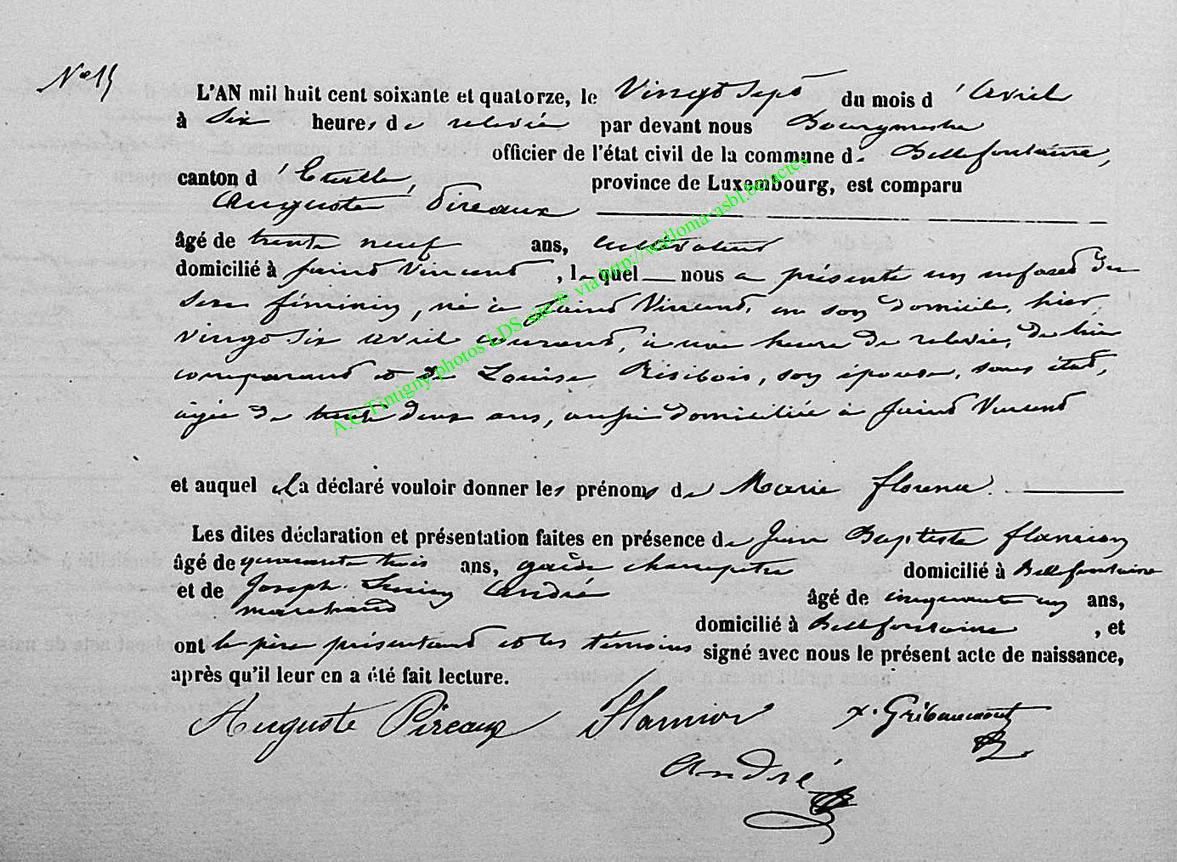 N° 15
L'AN mil huit cent soixante et quatorze, le Vingt sept du mois d'Avril
à Six heures de relevée par devant nous Bourgmestre
officier de l'état civil de la commune de Bellefontaine,
canton d'Etalle, province de Luxembourg, est comparu
Auguste Pireaux
âgé de trente neuf ans, cultivateur
domicilié à Saint Vincent, lequel nous a présenté un enfant du
sexe féminin, né à Saint Vincent, en son domicile, hier,
vingt six avril courant, à une heure de relevée, de lui
comparant et de Louise Risibois, son épouse, sans état,
âgée de trente deux ans, aussi domiciliée à Saint Vincent
et auquel il a déclaré vouloir donner les prénoms de Marie Florence.
Les dites déclaration et présentation faites en présence de Jean Baptiste Flamion
âgé de quarante trois ans, garde champetre domicilié à Bellefontaine
et de Joseph André âgé de cinquante un ans,
marchand domicilié à Bellefontaine, et
ont le père présentant et les témoins signé avec nous le présent acte de naissance,
après qu'il leur en a été fait lecture.
Auguste Pireaux Flamion x. Gribaumont
André
A.G. Tintigny photos LDS via http://walloma-asbl.be/acres